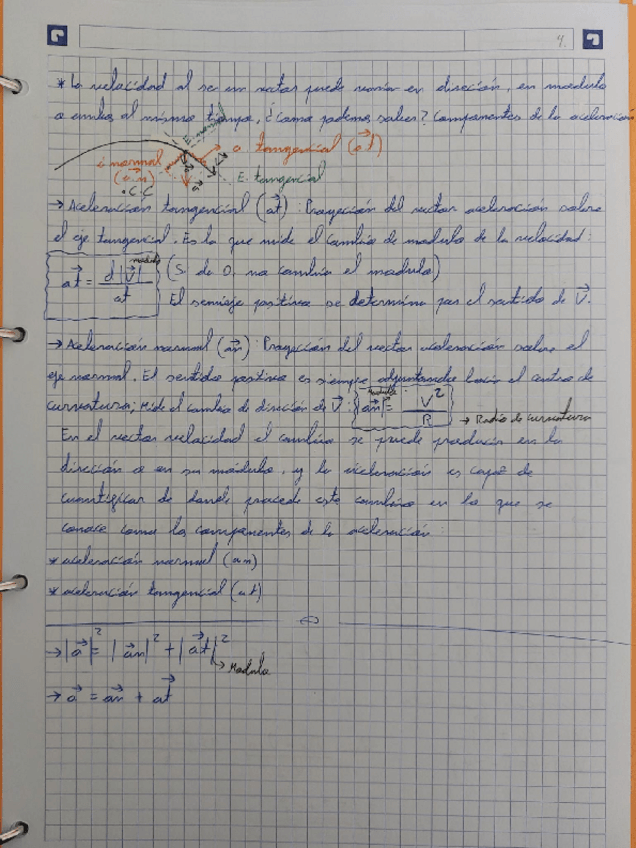 4.
* La velocidad al ser un vector puede variar en dirección, en modulo
o ambos al mismo tiempo, ¿Como podemos saber? Componentes de la aceleración
E. normal
a tangencial (at)
a normal
(an)
E. tangencial
C.C
→ Aceleración tangencial (at): Proyección del vector aceleración sobre
el eje tangencial. Es la que mide el cambio de modulo de la velocidad:
modulo
at = d|V| / dt (Si da 0, no cambia el modulo)
El semieje positivo se determina por el sentido de V.
→ Aceleración normal (an): Proyección del vector aceleración sobre el
eje normal. El sentido positivo es siempre hacia el centro de
Modulo
curvatura; Mide el cambio de dirección de V: |an| = V² / R → Radio de curvatura
En el vector velocidad el cambio se puede producir en la
dirección o en su módulo, y la aceleración es capaz de
cuantificar de donde procede este cambio en lo que se
conoce como las componentes de la aceleración:
* aceleración normal (an)
* aceleración tangencial (at)
→ |a|² = |an|² + |at|²
→ Modulo
→ a = an + at